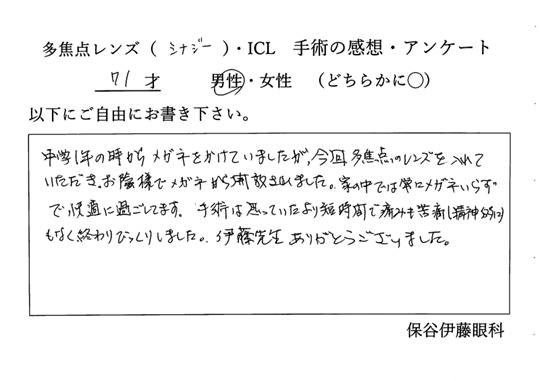 多焦点レンズ（ シナジー ）・ICL 手術の感想・アンケート
71 才 男性・女性 （どちらかに○）
以下にご自由にお書き下さい。
中学1年の時からメガネをかけていましたが、今回多焦点のレンズを入れて
いただき、お陰様でメガネから解放されました。家の中では常にメガネいらず
で快適に過ごしてます。手術は思っていたより短時間で痛みも苦痛(精神的に)
もなく終わりびっくりしました。伊藤先生ありがとうございました。
保谷伊藤眼科